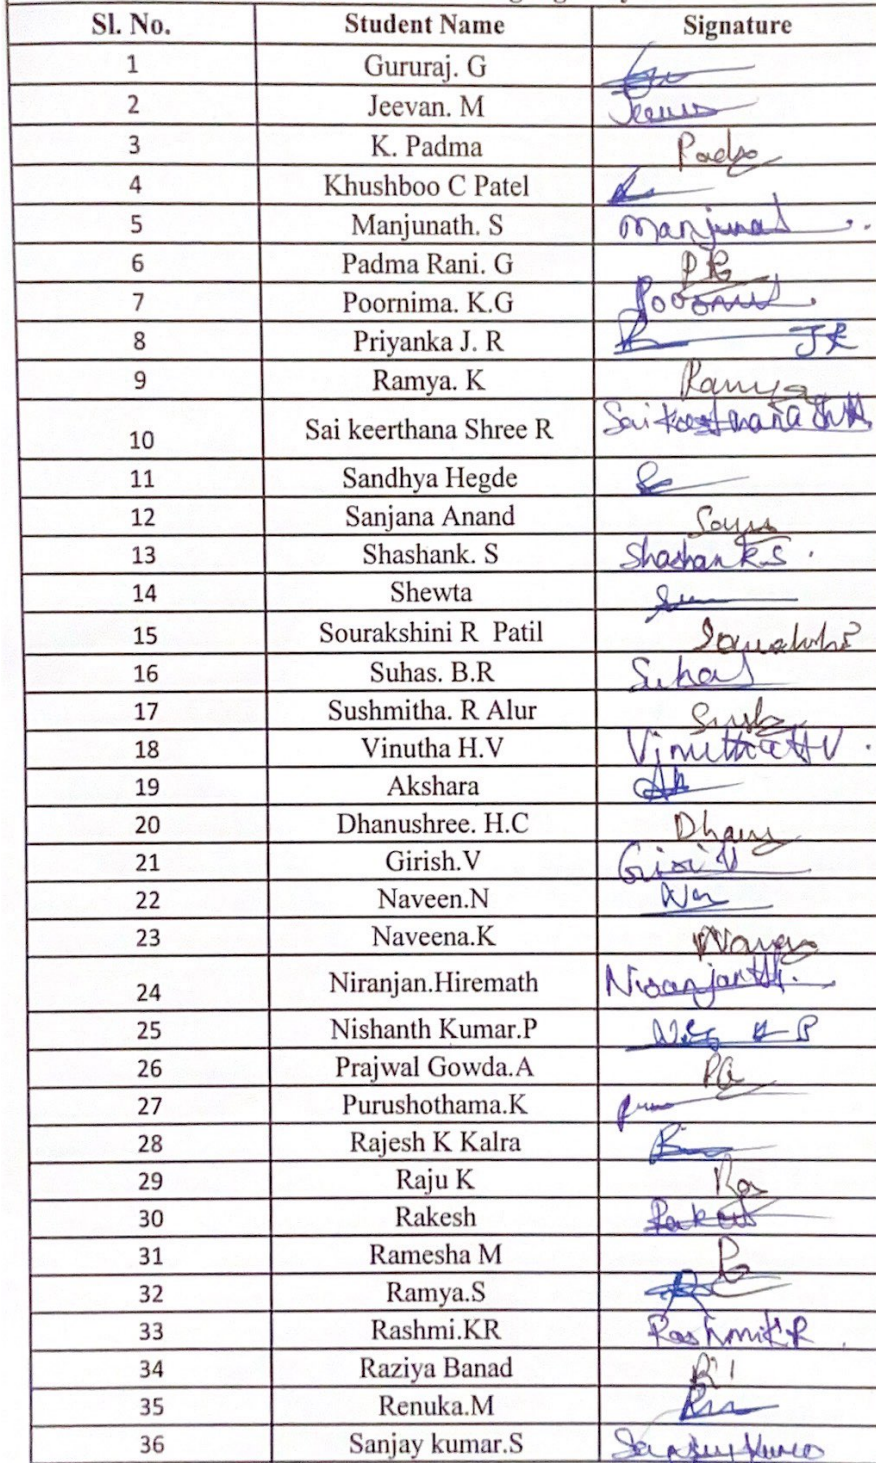 Sl. No. Student Name Signature
1 Gururaj. G
2 Jeevan. M Jeevan
3 K. Padma Padma
4 Khushboo C Patel
5 Manjunath. S Manjunath
6 Padma Rani. G PR
7 Poornima. K.G
8 Priyanka J. R JR
9 Ramya. K Ramya
10 Sai keerthana Shree R Sai Keerthana
11 Sandhya Hegde
12 Sanjana Anand
13 Shashank. S Shashank.S
14 Shewta
15 Sourakshini R Patil
16 Suhas. B.R Suhas
17 Sushmitha. R Alur
18 Vinutha H.V Vinutha H V
19 Akshara
20 Dhanushree. H.C
21 Girish.V
22 Naveen.N
23 Naveena.K
24 Niranjan.Hiremath Niranjan H.
25 Nishanth Kumar.P
26 Prajwal Gowda.A
27 Purushothama.K
28 Rajesh K Kalra
29 Raju K
30 Rakesh Rakesh
31 Ramesha M
32 Ramya.S
33 Rashmi.KR Rashmi K R
34 Raziya Banad
35 Renuka.M
36 Sanjay kumar.S Sanjay Kumar